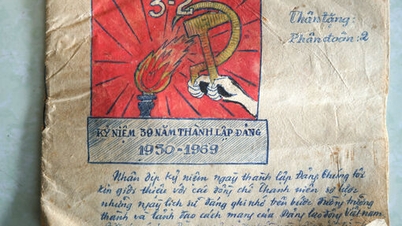 3-2
Thân tặng:
Phân đoàn: 2
KỶ NIỆM 39 NĂM THÀNH LẬP ĐẢNG
1930-1969
Nhân dịp kỷ niệm ngày thành lập Đảng chúng tôi
xin giới thiệu với các đồng chí thanh niên sơ lược
những ngày lịch sử đáng ghi nhớ trên bước đường trưởng
thành và lãnh đạo cách mạng của Đảng lao động Việt nam.